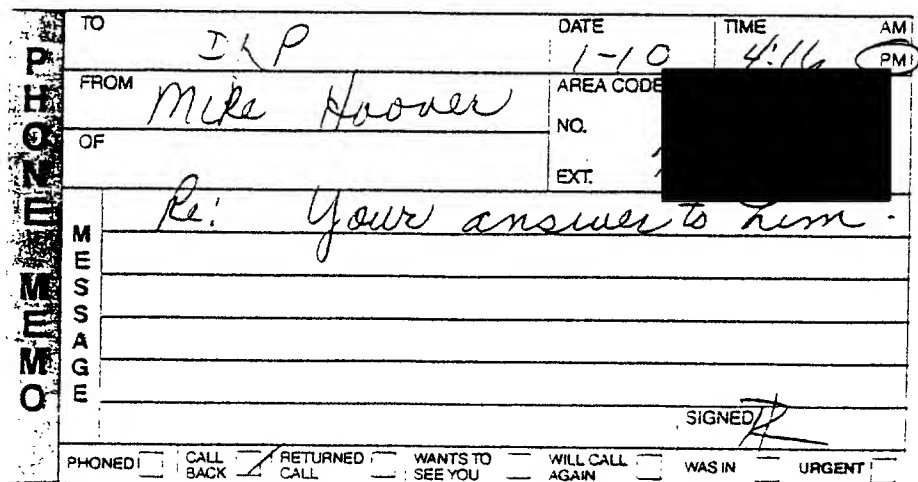 PHONE MEMO
TO DATE TIME AM
1-10 4:16 PM
FROM Mike Hoover AREA CODE
OF NO.
EXT.
MESSAGE
Re: Your answer to him.
SIGNED R
PHONED CALL BACK RETURNED CALL WANTS TO SEE YOU WILL CALL AGAIN WAS IN URGENT